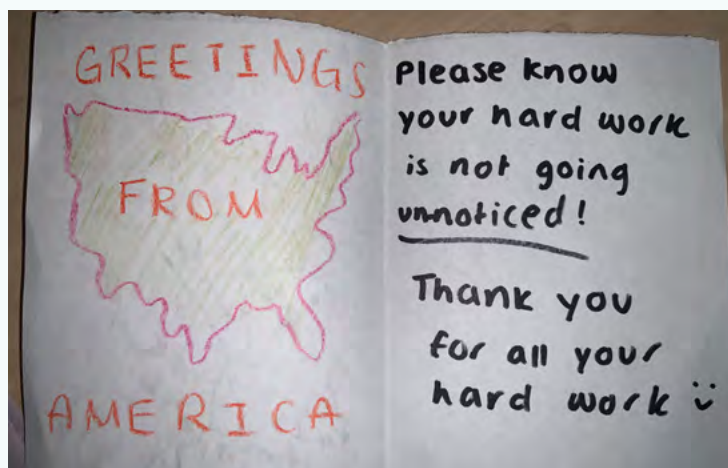 GREETINGS
FROM
AMERICA
Please know
your hard work
is not going
unnoticed!
Thank you
for all your
hard work